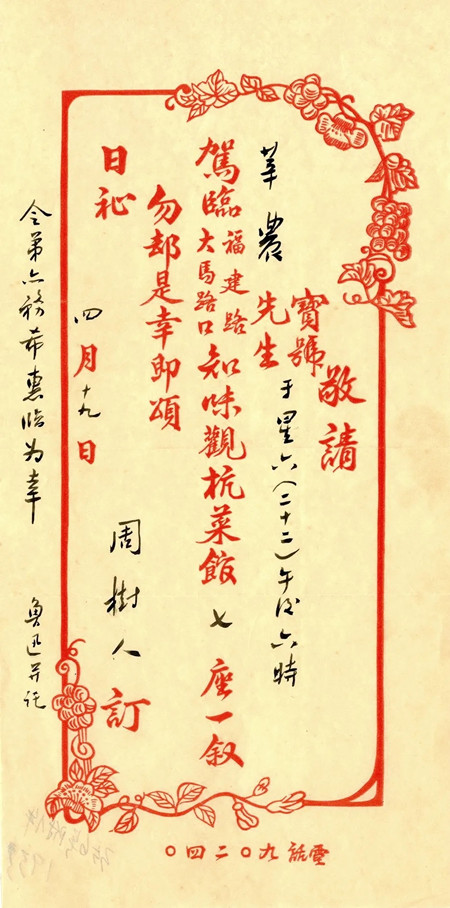 敬請
寶號
莘農 先生 于星六(二十二)午后六時
駕臨福建路大馬路口知味觀杭菜館 七 座一叙
勿却是幸即頌
日祉
四月十九日 周樹人 訂
令弟亦務希惠臨为幸 魯迅并托
電話九〇二四〇